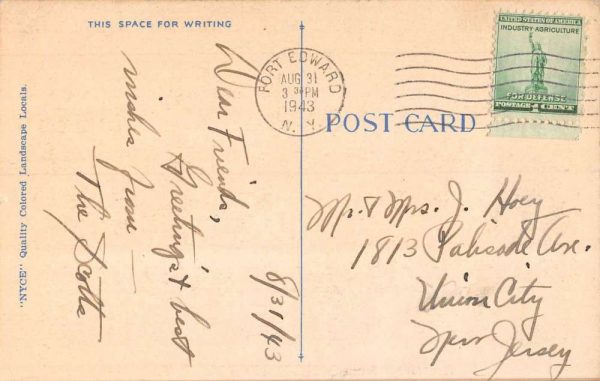 THIS SPACE FOR WRITING
"NYCE" Quality Colored Landscape Locals.
Dear Friends,
Greetings & best
wishes from —
The Scotts
8/31/43
FORT EDWARD
AUG 31
3 PM
1943
N. Y.
UNITED STATES OF AMERICA
INDUSTRY AGRICULTURE
FOR DEFENSE
POSTAGE 1 CENT
POST CARD
Mr. & Mrs. J. Hoey
1813 Palisade Ave.
Union City
New Jersey